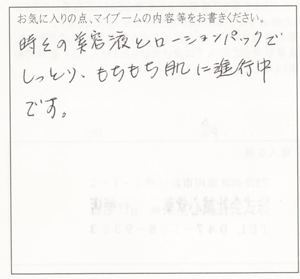 お気に入りの点、マイブームの内容等をお書きください。
時々の美容液とローションパックで
しっとり、もちもち肌に進行中
です。